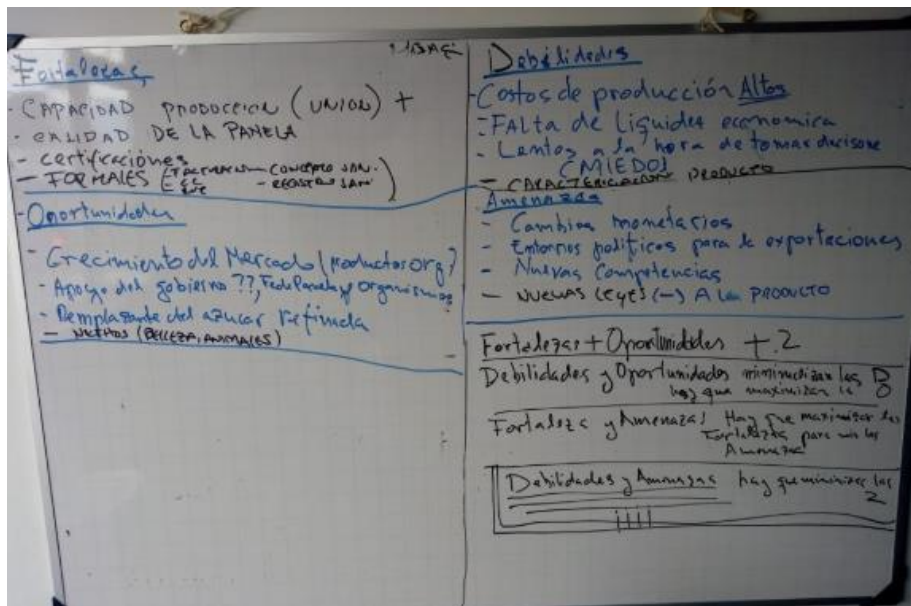 Fortalezas
- CAPACIDAD PRODUCCION (UNION) +
- CALIDAD DE LA PANELA
- certificaciónes
- FORMALES CONCEPTO SAN.
- REGISTRO SAN
- Oportunidades
- Crecimiento del Mercado (Productos org)
- Apoyo del gobierno ??, FedePanela y organismos
- Remplazante del azucar refinada
- NICHOS (BELLEZA, ANIMALES)
Debilidades
- Costos de producción Altos
- FALTA de liquides economica
- Lentos a la hora de tomar decisione
(MIEDO)
- CARACTERIZACION PRODUCTO
Amenazas
- Cambios monetarios
- Entornos politicos para la exportaciones
- Nuevas Competencias
- NUEVAS LEYES (-) A LA PRODUCTO
Fortalezas + Oportunidades + 2
Debilidades y Oportunidades las D
hay que maximizar la O
Fortaleza y Amenazas Hay que maximizar las
Fortaleza para las
Amenazas
Debilidades y Amenazas hay que minimizar las
2